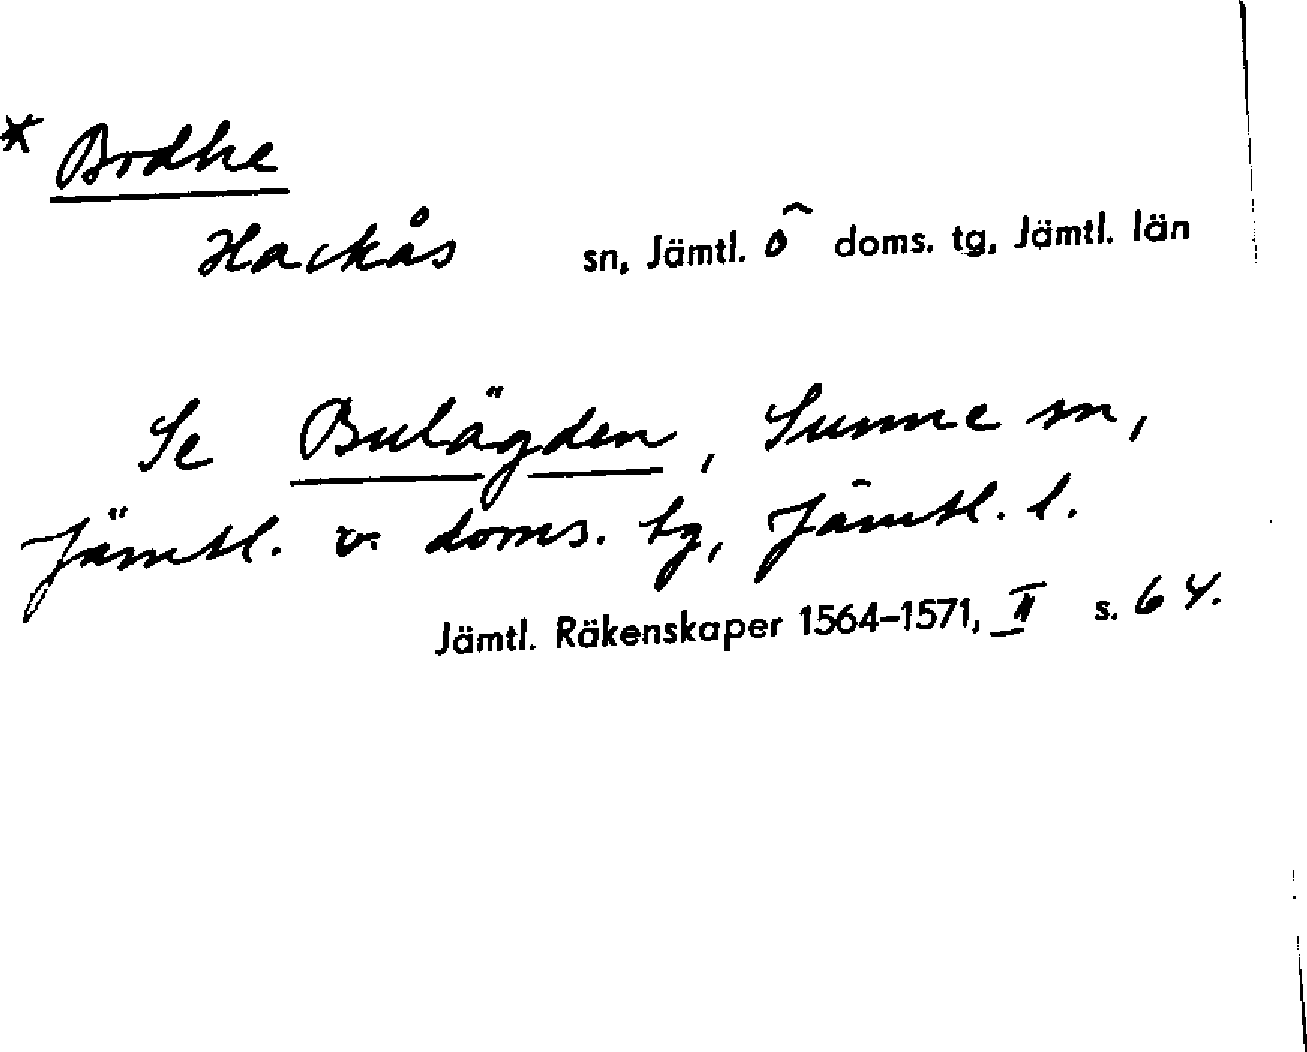 * Bodhe
Hackås sn, Jämtl. ö doms. tg, Jämtl. län
Se Bulägden, Sunne sn,
Jämtl. v. doms. tg, Jämtl. l.
Jämtl. Räkenskaper 1564-1571, II s. 64.